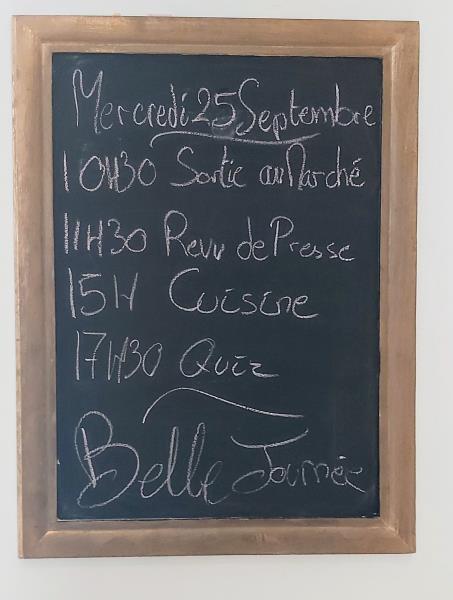 Mercredi 25 Septembre
10H30 Sortie au Marché
11H30 Revu de Presse
15H Cuisine
17H30 Quiz
Belle Journée